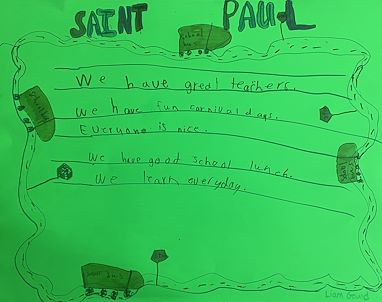 SAINT PAUL
We have great teachers.
We have fun carnival days.
Everyone is nice.
We have good school lunch.
We learn everyday.
Liam